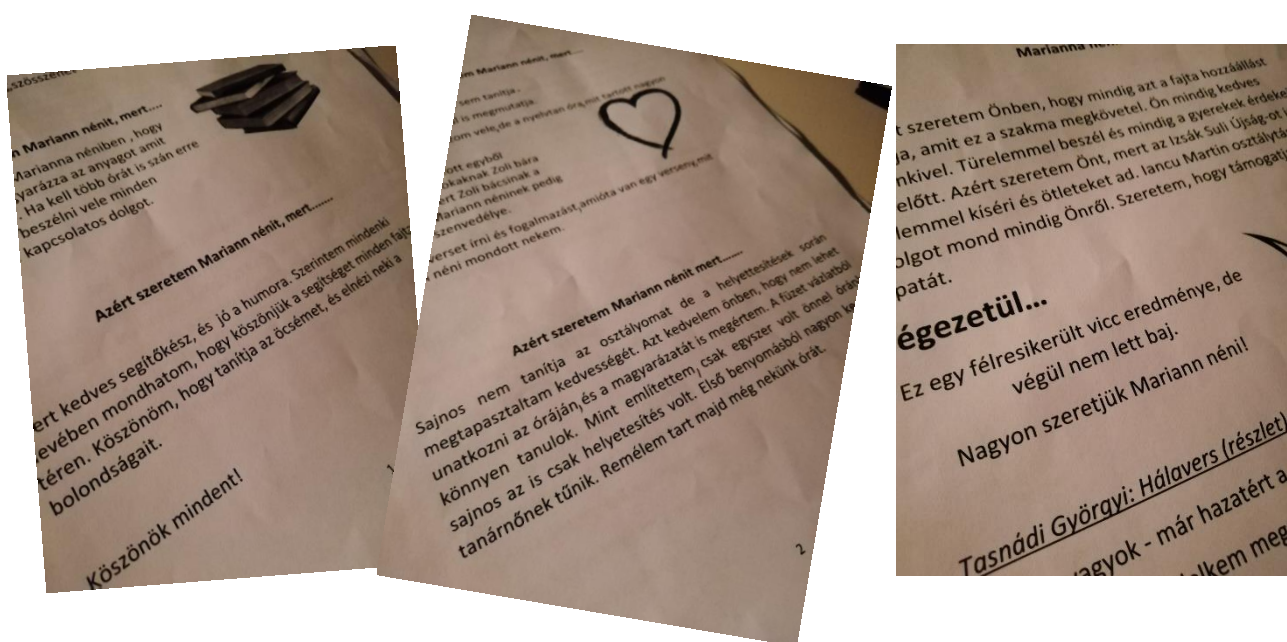 szösszenet
n Mariann nénit, mert.....
Marianna néniben , hogy
yarázza az anyagot amit
. Ha kell több órát is szán erre
beszélni vele minden
kapcsolatos dolgot.
Azért szeretem Mariann nénit, mert.......
ert kedves segítőkész, és jó a humora. Szerintem mindenki
evében mondhatom, hogy köszönjük a segítséget minden fajta
téren. Köszönöm, hogy tanítja az öcsémet, és elnézi neki a
bolondságait.
Köszönök mindent!
1
m Mariann nénit, mert.....
sem tanítja.
is megmutatja.
om vele,de a nyelvtan óra,mit tartott nagyon
ött egyből
okaknak Zoli bára
ert Zoli bácsinak a
Mariann néninek pedig
szenvedélye.
verset írni és fogalmazást,amióta van egy verseny,mit
néni mondott nekem.
Azért szeretem Mariann nénit mert.......
Sajnos nem tanítja az osztályomat de a helyettesítések során
megtapasztaltam kedvességét. Azt kedvelem önben, hogy nem lehet
unatkozni az óráján,és a magyarázatát is megértem. A füzet vázlatból
könnyen tanulok. Mint említettem, csak egyszer volt önnel órán
sajnos az is csak helyetesítés volt. Első benyomásból nagyon ke
tanárnőnek tűnik. Remélem tart majd még nekünk órát.
2
Marianna nén
t szeretem Önben, hogy mindig azt a fajta hozzáállást
ja, amit ez a szakma megkövetel. Ön mindig kedves
nkivel. Türelemmel beszél és mindig a gyerekek érdeke
előtt. Azért szeretem Önt, mert az Izsák Suli Újság-ot i
lemmel kíséri és ötleteket ad. Iancu Martin osztálytá
olgot mond mindig Önről. Szeretem, hogy támogatj
patát.
égezetül...
Ez egy félresikerült vicc eredménye, de
végül nem lett baj.
Nagyon szeretjük Mariann néni!
Tasnádi Györgyi: Hálavers (részlet)
vagyok - már hazatért a
lelkem meg